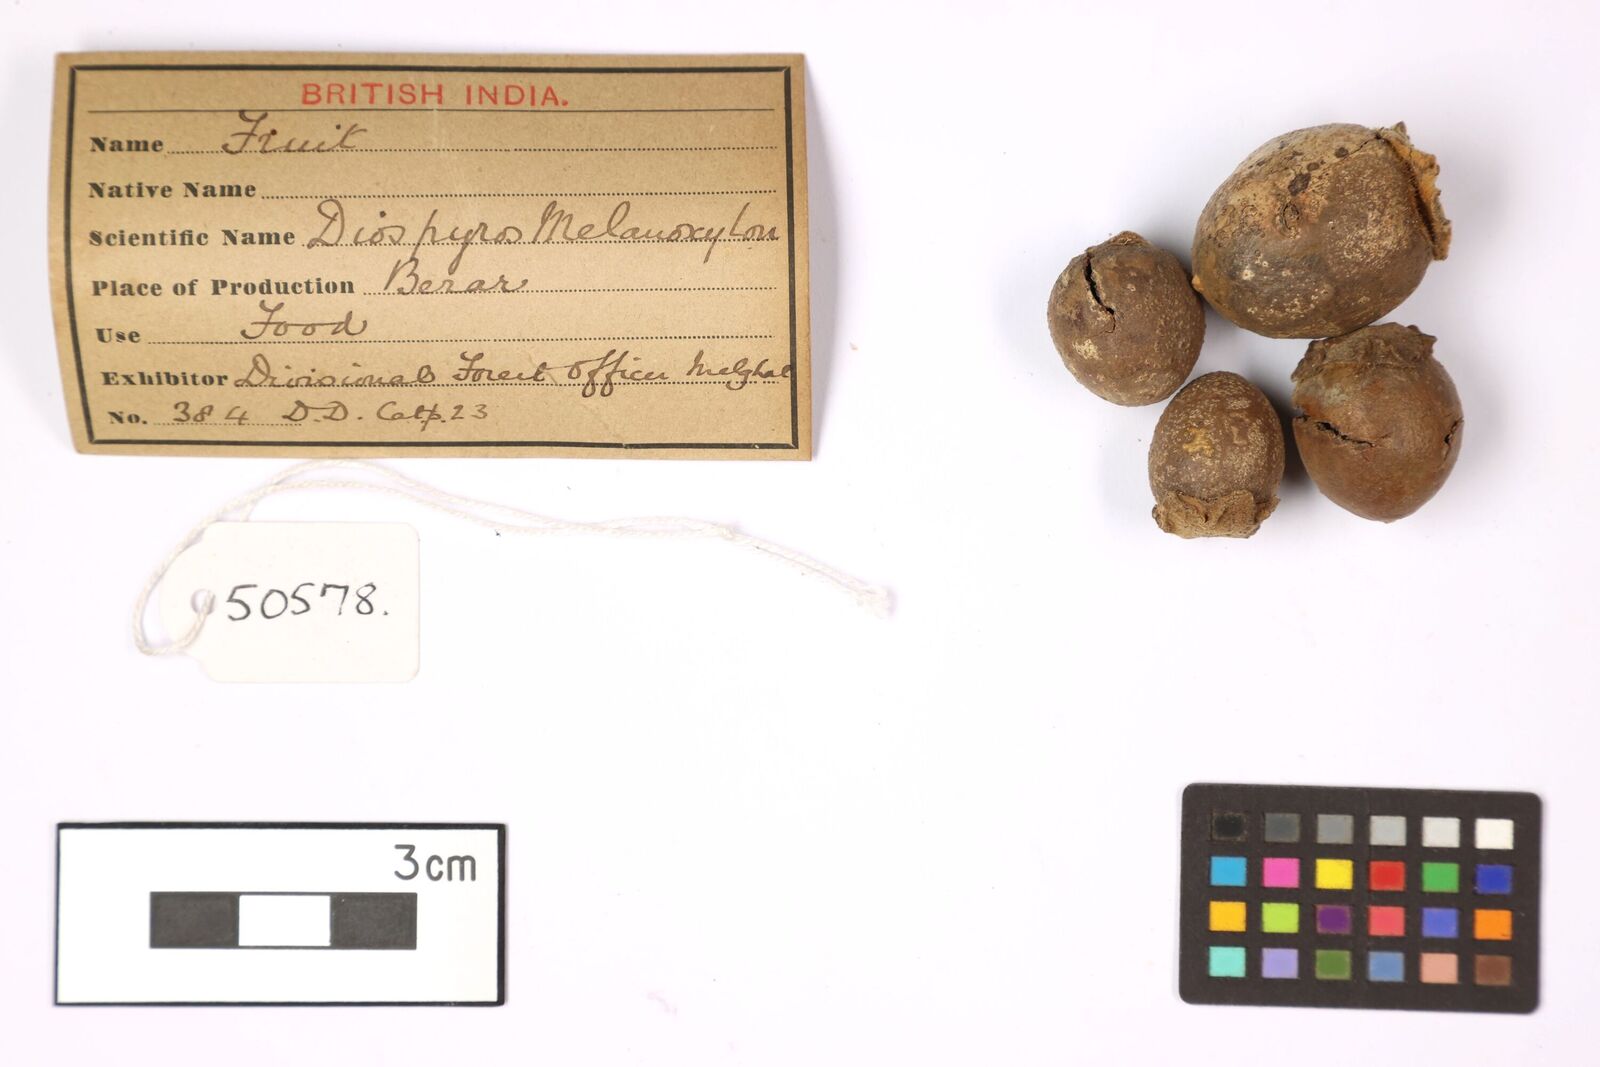 BRITISH INDIA.
Name Fruit
Native Name
Scientific Name Diospyros Melanoxylon
Place of Production Berar
Use Food
Exhibitor Divisional Forest Officer Melghat
No. 384 D.D. Catp. 23
50578.
3cm